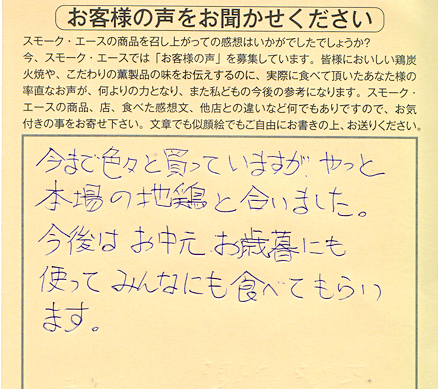 お客様の声をお聞かせください
スモーク・エースの商品を召し上がっての感想はいかがでしたでしょうか?
今、スモーク・エースでは「お客様の声」を募集しています。皆様においしい鶏炭
火焼や、こだわりの薫製品の味をお伝えするのに、実際に食べて頂いたあなた様の
率直なお声が、何よりの力となり、また私どもの今後の参考になります。スモーク・
エースの商品、店、食べた感想文、他店との違いなど何でもありですので、お気
付きの事をお寄せ下さい。文章でも似顔絵でもご自由にお書きの上、お送りください。
今まで色々と買っていますが、やっと
本場の地鶏と合いました。
今後は お中元 お歳暮にも
使って みんなにも食べてもらい
ます。